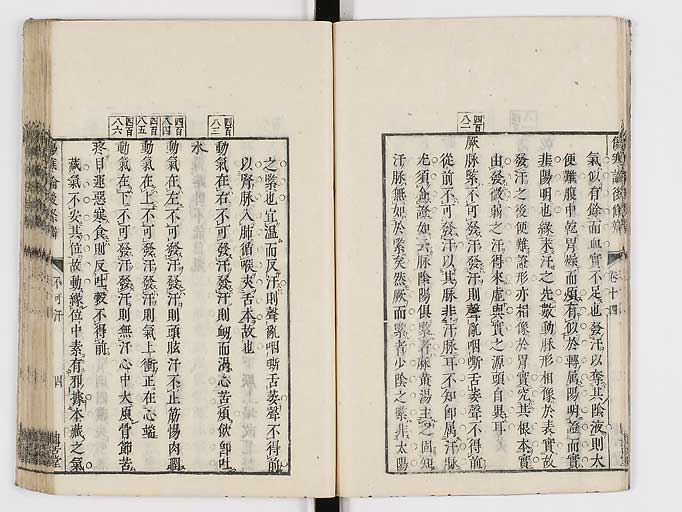 傷寒論後條辨 卷十四
氣似有餘而血實不足也發汗以奪其陰液則大
便難腹中乾胃燥而煩有似於轉屬陽明證而實
非陽明也緣未汗之先數動脈形相像於表實故
發汗之後便難證形亦相像於胃實究其根本實
由發微弱之汗得來虛與實之源頭自異耳
四百八二
厥脈緊不可發汗發汗則聲亂咽嘶舌萎聲不得前
從前不可發汗以其脈非汗脈耳不知即屬汗脈
尤須合證如云脈陰陽俱緊者麻黃湯主之固知
汗脈無如於緊矣然厥而緊者少陰之緊非太陽
之緊也宜溫而反汗則聲亂咽嘶舌萎聲不得前
以腎脈入肺循喉夾舌本故也
四百八三
動氣在右不可發汗發汗則衄而渴心苦煩飲即吐
水
四百八四
動氣在左不可發汗發汗則頭眩汗不止筋惕肉瞤
四百八五
動氣在上不可發汗發汗則氣上衝正在心端
四百八六
動氣在下不可發汗發汗則無汗心中大煩骨節苦
疼目運惡寒食則反吐穀不得前
藏氣不安其位故動緣位中素有
本藏之氣
傷寒論後條辨 不可汗 四